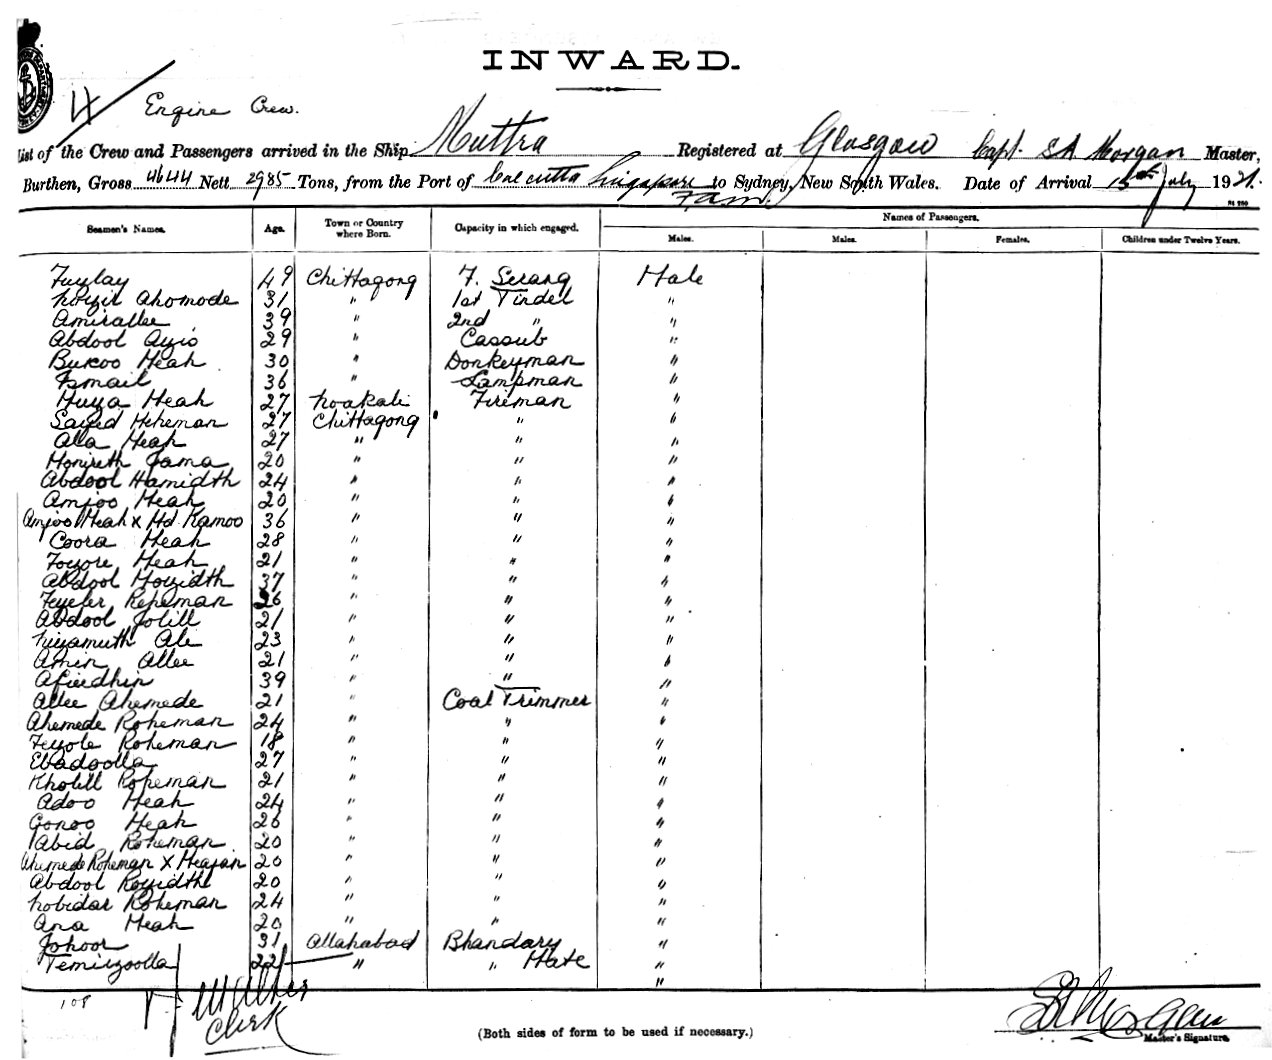 INWARD.
4 Engine Crew.
List of the Crew and Passengers arrived in the Ship Muttra Registered at Glasgow Capt. S A Morgan Master,
Burthen, Gross 4644 Nett 2985 Tons, from the Port of Calcutta Singapore to Sydney, New South Wales. Date of Arrival 15th July 1921.
Seamen's Names. Age. Town or Country where Born. Capacity in which engaged. Names of Passengers.
Males. Males. Females. Children under Twelve Years.
Fuylay 49 Chittagong F. Serang Male
Ahomode 31 " 1st Tindel "
Amirallee 39 " 2nd " "
Abdool Ayis 29 " Cassub "
Bukoo Meah 30 " Donkeyman "
Ismail 36 " Lampman "
Huya Meah 27 Noakali Fireman "
Sayed Heheman 27 Chittagong " "
Alla Meah 27 " " "
Monireth Jama 20 " " "
Abdool Hamidth 24 " " "
Amjoo Meah 20 " " "
Amjoo Meah x Md Kamoo 36 " " "
Coora Meah 28 " " "
Foyore Meah 21 " " "
Abdool Moyidth 37 " " "
Feyefer Reheman 26 " " "
Abdool Jolill 21 " " "
Niyamuth Ali 23 " " "
Amin Allee 21 " " "
Afiedhin 39 " " "
Allee Ahemede 21 " Coal Trimmer "
Ahemede Roheman 24 " " "
Feyole Roheman 18 " " "
Ebadoolla 27 " " "
Kholill Roheman 21 " " "
Adoo Meah 24 " " "
Gonoo Meah 26 " " "
Abid Roheman 20 " " "
Ahemede Roheman x Meajan 20 " " "
Abdool Royidth 20 " " "
Nobidar Roheman 24 " " "
Ana Meah 20 " " "
Johoor 31 Allahabad Bhandary "
Temizoolla 22 " " Mate "
"
108
Clerk
S A Morgan
Master's Signature.
(Both sides of form to be used if necessary.)